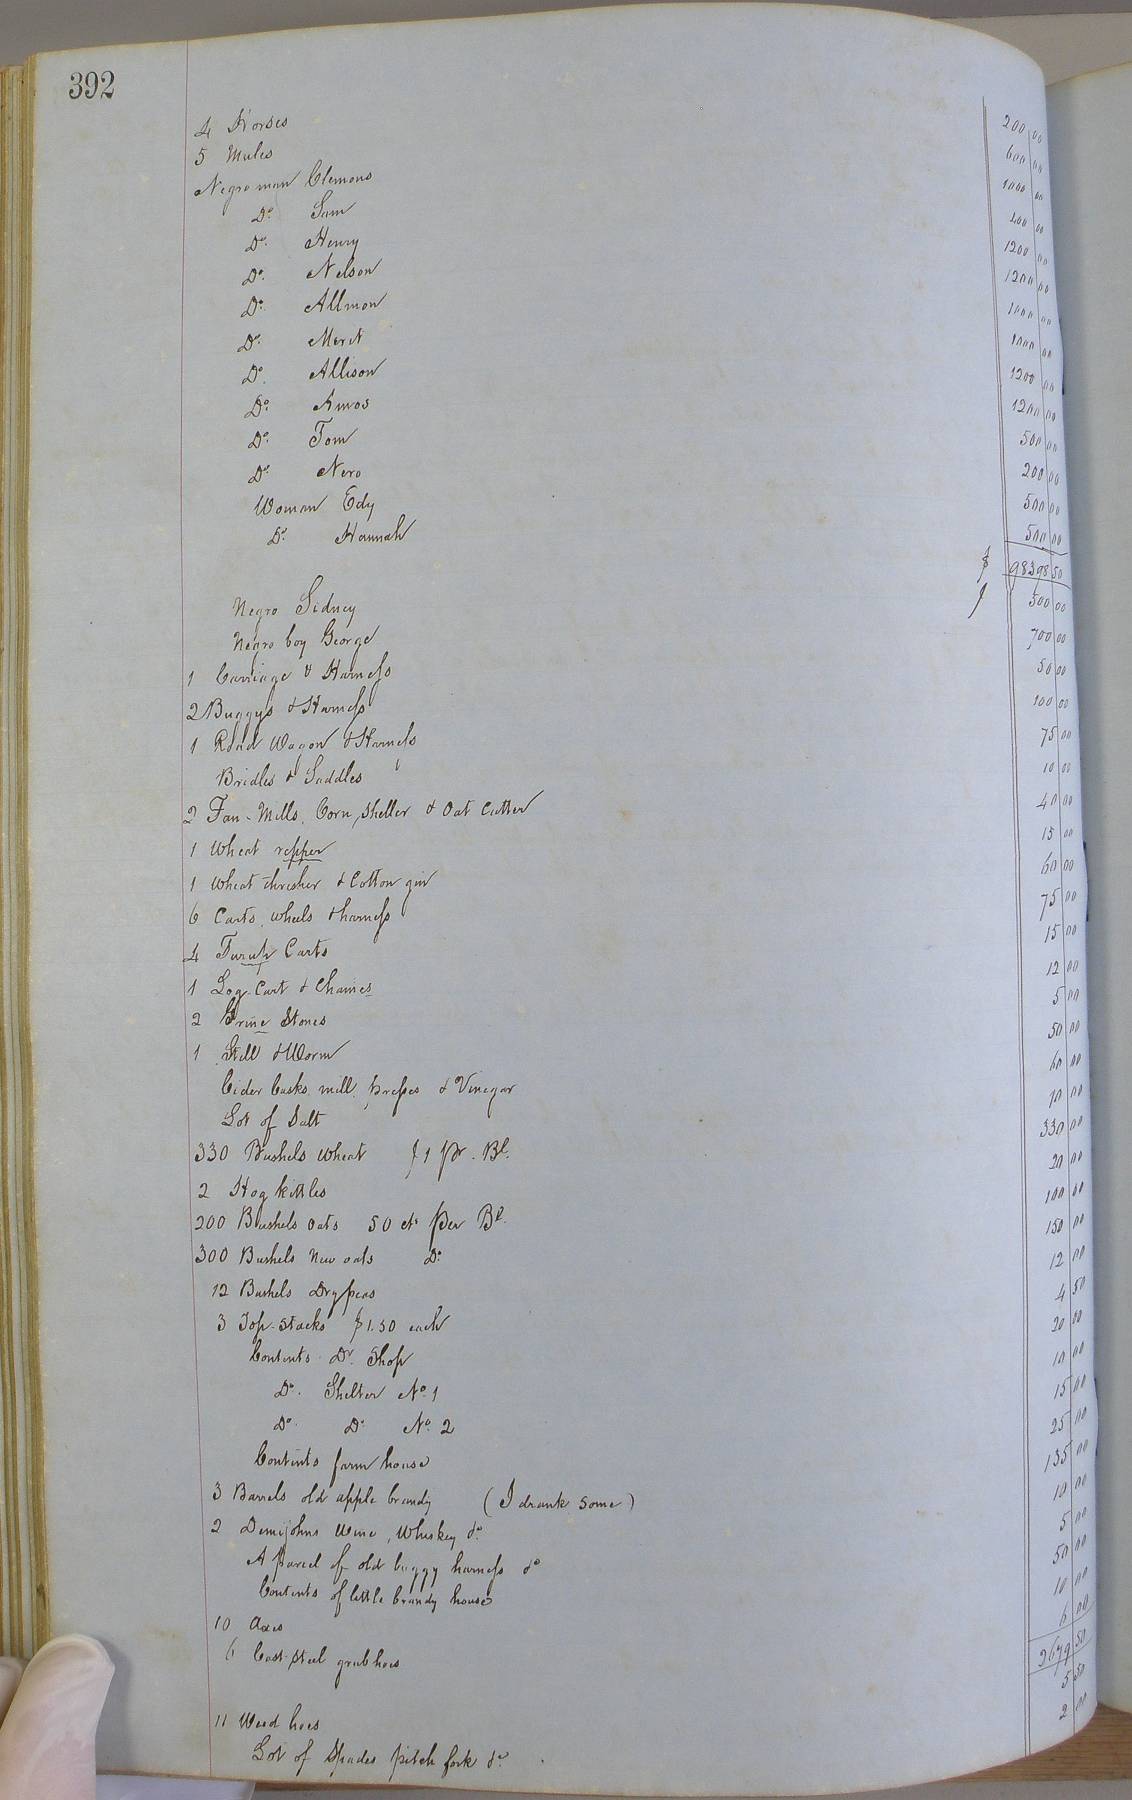 392
4 Horses 200 00
5 Mules 600 00
Negro man Clemons 1000 00
Do. Sam 400 00
Do. Henry 1200 00
Do. Nelson 1200 00
Do. Allmon 1000 00
Do. Merit 1000 00
Do. Allison 1200 00
Do. Amos 1200 00
Do. Tom 500 00
Do. Nero 200 00
Woman Edy 500 00
Do. Hannah 500 00
$ 98398 50
Negro Sidney 500 00
Negro boy George 700 00
1 Carriage & Harness 50 00
2 Buggys & Harness 100 00
1 Road Wagon & Harness 75 00
Bridles & Saddles 10 00
2 Fan-Mills, Corn Sheller & Oat Cutter 40 00
1 Wheat repper 15 00
1 Wheat thresher & Cotton gin 60 00
6 Carts, wheels & harness 75 00
4 Carts 15 00
1 Log-Cart & Chaines 12 00
2 Grine Stones 5 00
1 Still & Worm 50 00
Cider Casks, mill, presses & Vinegar 60 00
Lot of Salt 10 00
330 Bushels wheat $1 pr. Bl. 330 00
2 Hog kettles 20 00
200 Bushels oats 50 cts per Bl. 100 00
300 Bushels New oats Do 150 00
12 Bushels Dry peas 12 00
3 Top-Stacks $1.50 each 4 50
Contents Dr. Shop 20 00
Do. Shelter No. 1 10 00
Do. Do No. 2 15 00
Contents farm house 25 00
3 Barrels old apple brandy (I drank some) 135 00
2 Demijohns Wine, Whiskey &c. 10 00
A parcel of old buggy harness &c 5 00
Contents of little brandy house 50 00
10 Axes 10 00
6 Cast-Steel grub hoes 6 00
2679 50
11 Weed hoes 5 50
Lot of Spades pitch fork &c. 2 00